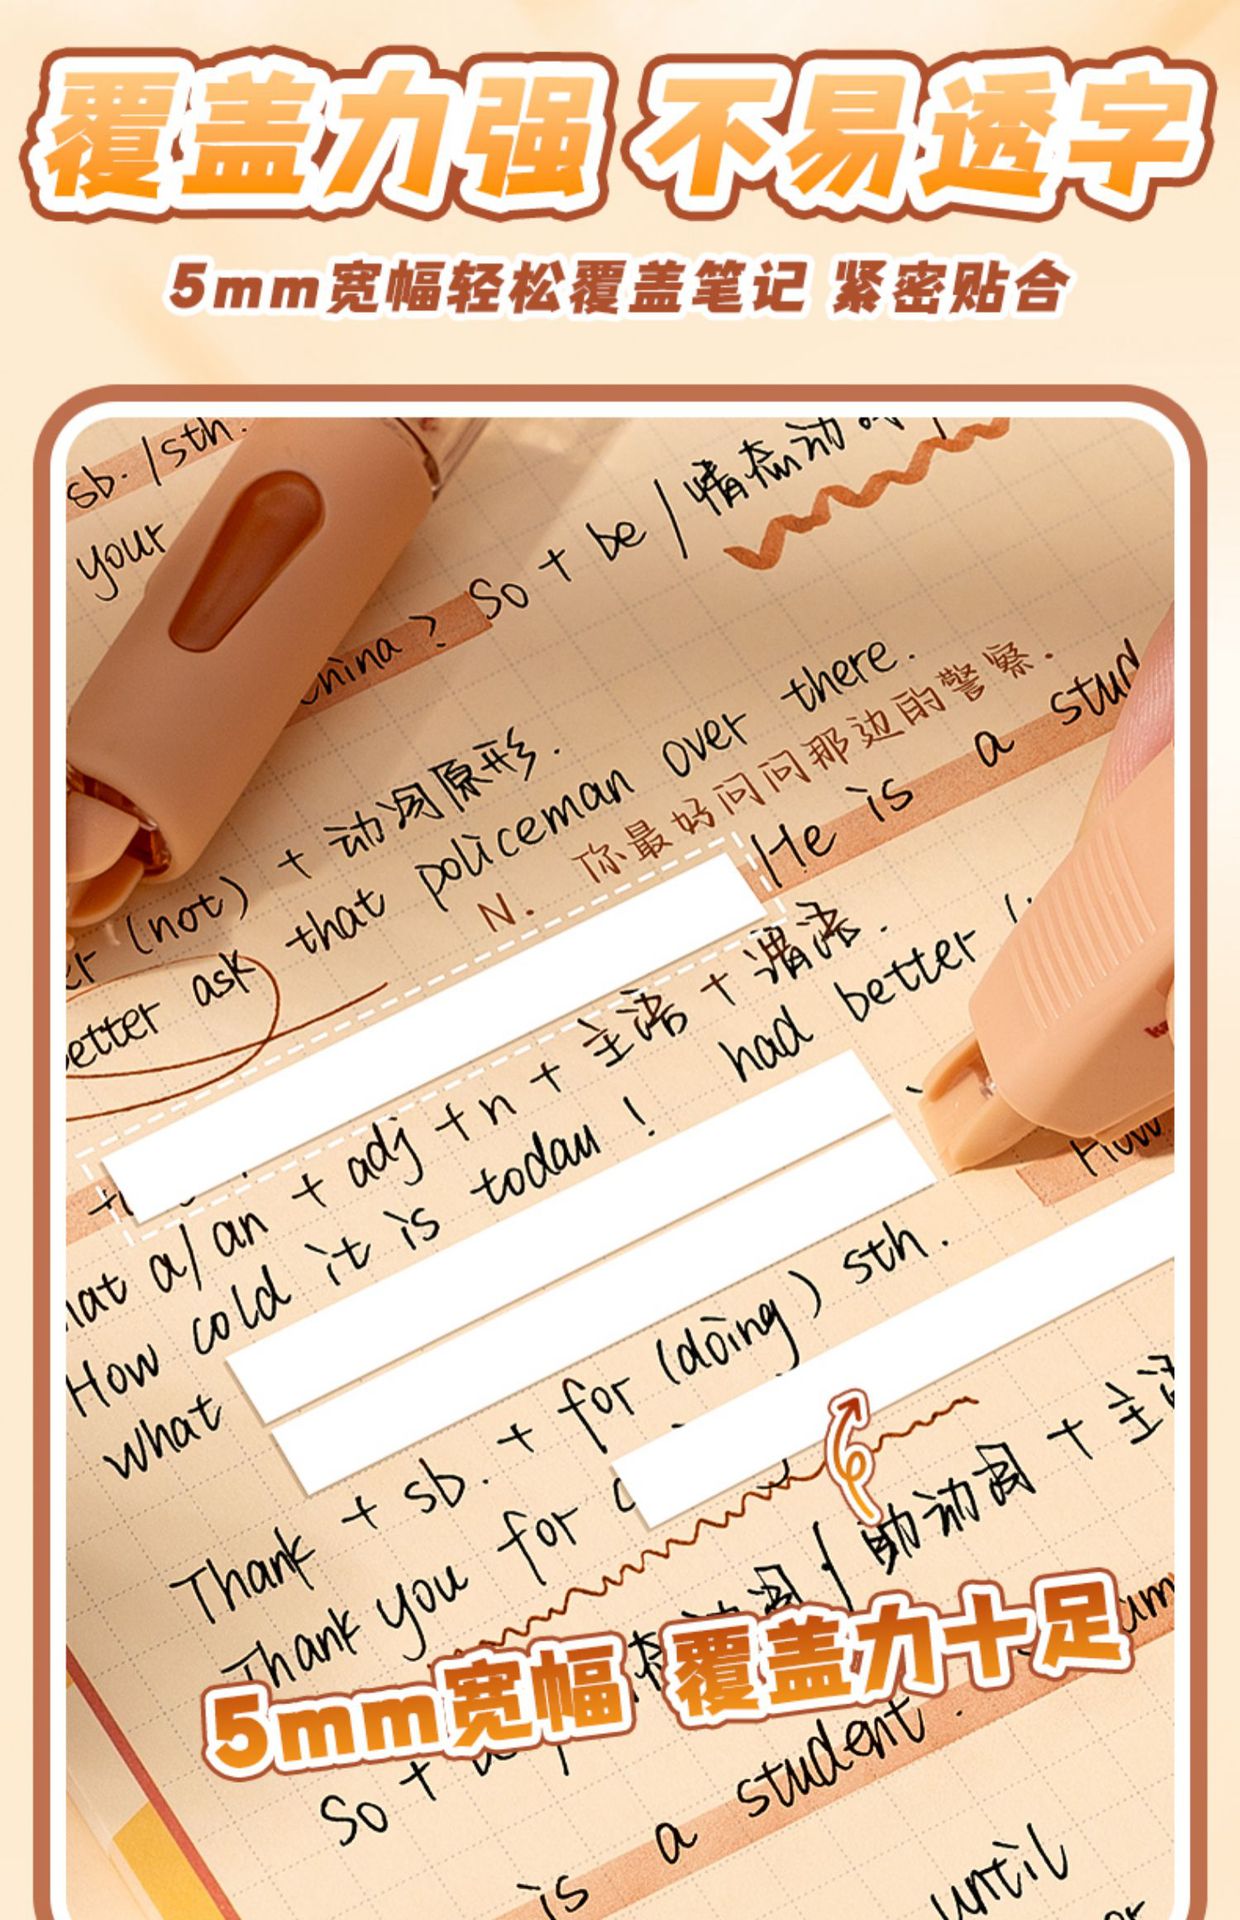 覆盖力强 不易透字
5mm宽幅轻松覆盖笔记 紧密贴合
sb. / sth.
your
China? So + be / 情态动
(not) + 动词原形.
better ask that policeman over there.
N. 你最好问问那边的警察.
He is a stud
at a / an + adj + n + 主语 + 谓语.
How cold it is today! had better
what
How
Thank + sb. + for (doing) sth.
Thank you for
动词 / 助动词 + 主语
5mm宽幅 覆盖力十足
So +
is a student.
until